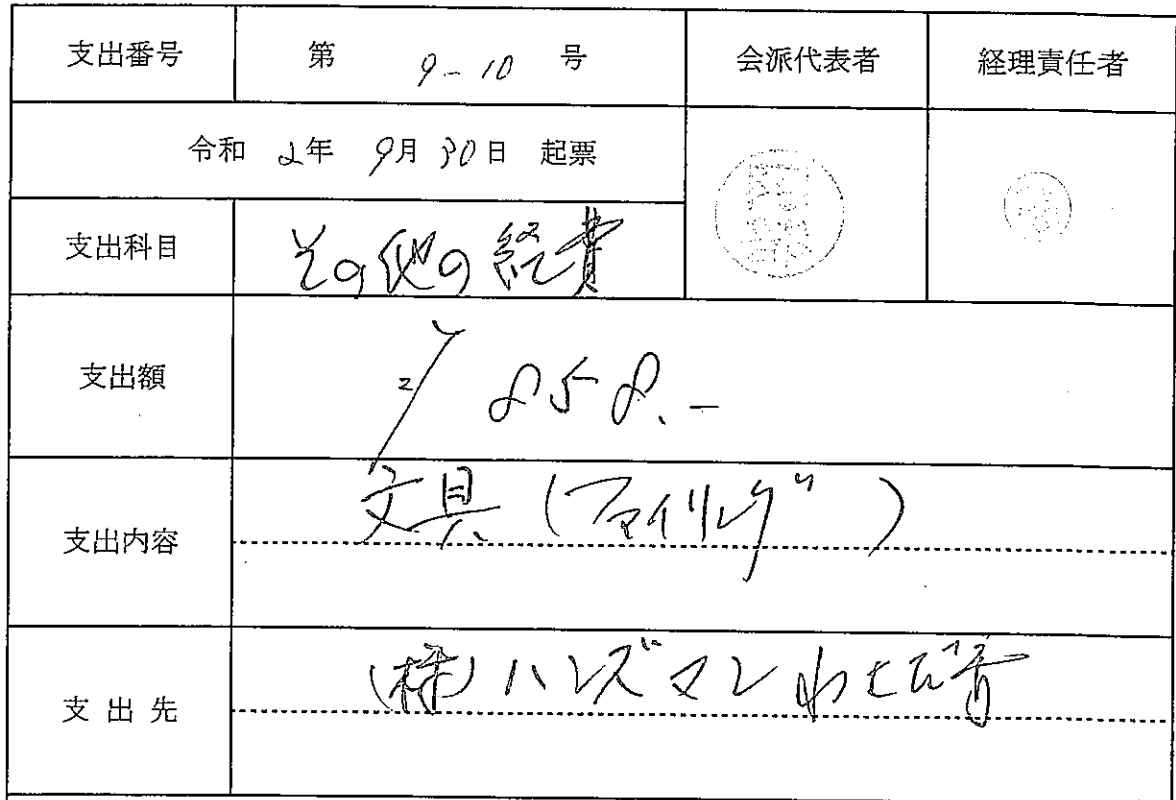 支出番号 第 9-10 号 会派代表者 経理責任者
令和 2年 9月 30日 起票
支出科目 その他の経費
支出額 ¥858.-
支出内容 文具(ファイリング)
支出先 (株)ハンズマン